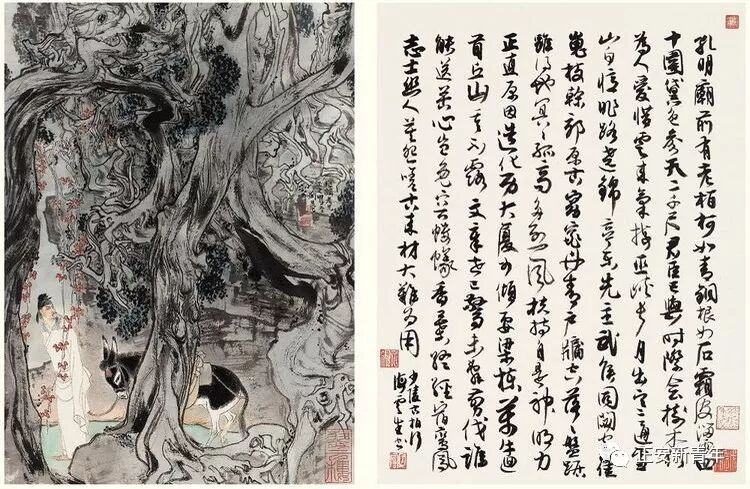 孔明廟前有老柏柯如青銅根如石霜皮溜雨四
十圍黛色參天二千尺君臣已與時際會樹木猶
為人愛惜雲來氣接巫峽長月出寒通雪
山白憶昨路遶錦亭東先主武侯同閟宮崔
嵬枝幹郊原古窈窕丹青戶牖空落落盤踞
雖得地冥冥孤高多烈風扶持自是神明力
正直原因造化功大廈如傾要梁棟萬牛迴
首丘山重不露文章世已驚未辭剪伐誰
能送苦心豈免容螻蟻香葉終經宿鸞鳳
志士幽人莫怨嗟古來材大難為用
少陵古柏行
海雲生書
正安新青年